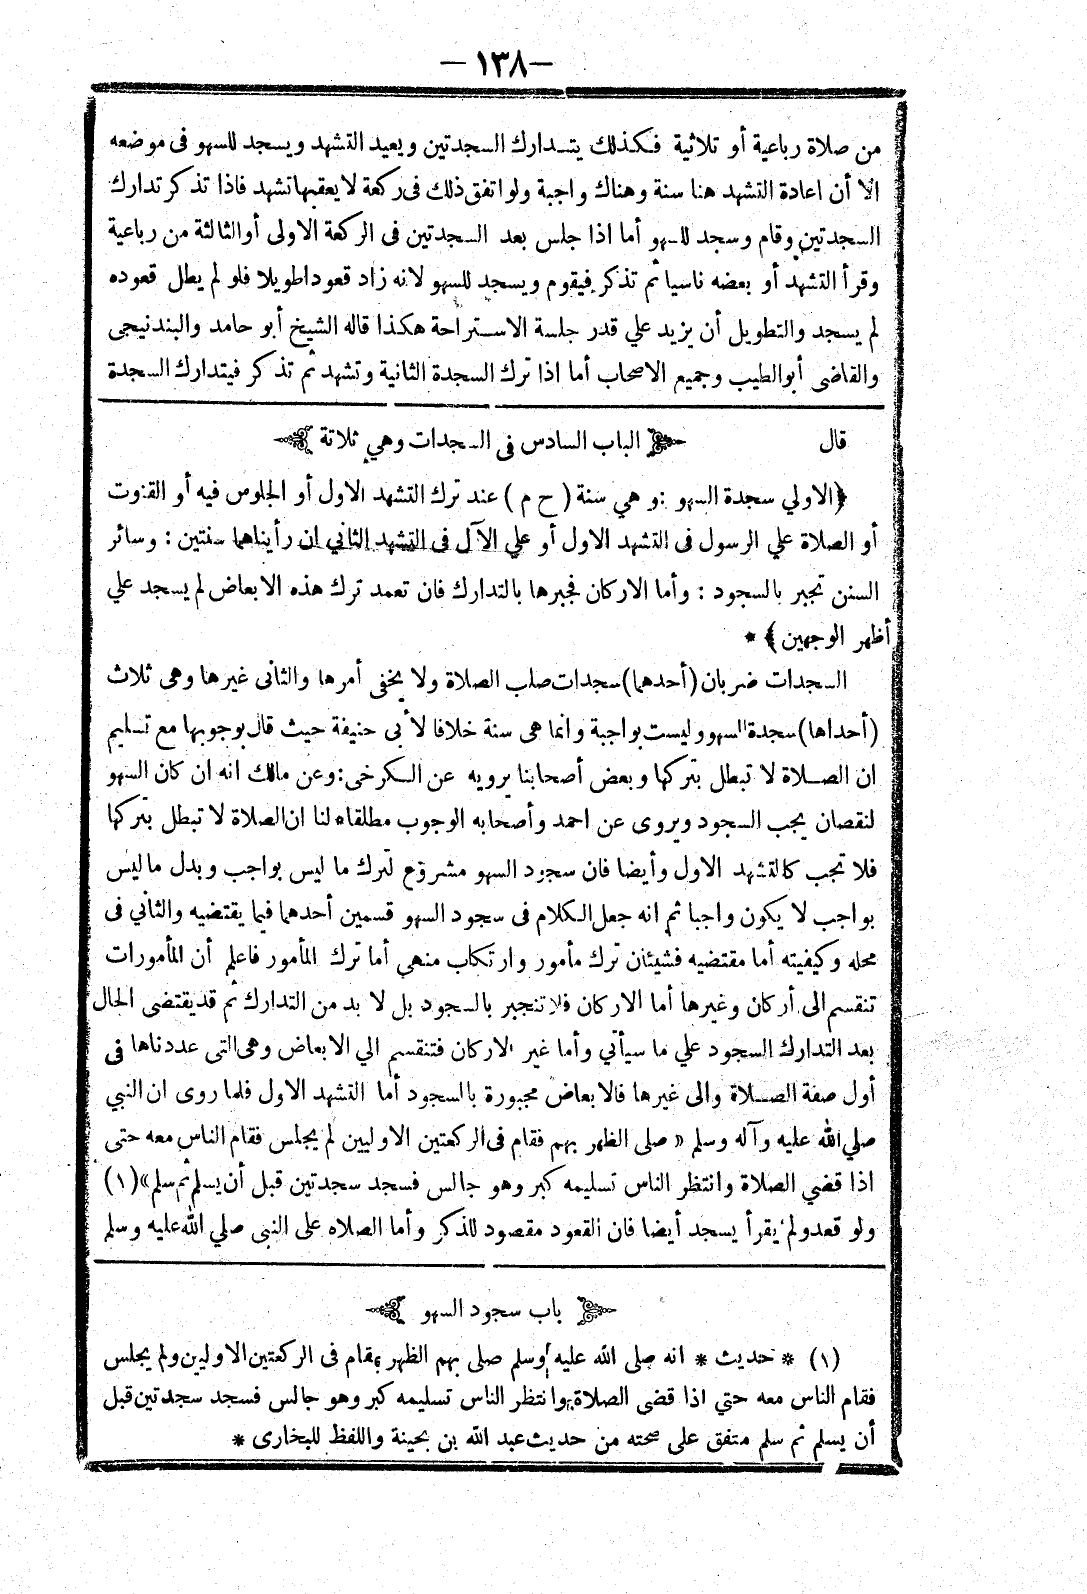 —١٣٨—
من صلاة رباعية أو ثلاثية فكذلك يتدارك السجدتين ويعيد التشهد ويسجد للسهو فى موضعه
الا أن اعادة التشهد هنا سنة وهناك واجبة ولو اتفق ذلك فى ركعة لا يعقبها تشهد فاذا تذكر تدارك
السجدتين وقام وسجد للسهو أما اذا جلس بعد السجدتين فى الركعة الاولى أو الثالثة من رباعية
وقرأ التشهد أو بعضه ناسيا ثم تذكر فيقوم ويسجد للسهو لانه زاد قعودا طويلا فلو لم يطل قعوده
لم يسجد والتطويل أن يزيد علي قدر جلسة الاستراحة هكذا قاله الشيخ أبو حامد والبندنيجى
والقاضى أبوالطيب وجميع الاصحاب أما اذا ترك السجدة الثانية وتشهد ثم تذكر فيتدارك السجدة
قال الباب السادس فى السجدات وهي ثلاثة
﴿الاولي سجدة السهو : و هي سنة ( ح م ) عند ترك التشهد الاول أو الجلوس فيه أو القنوت
أو الصلاة علي الرسول فى التشهد الاول أو علي الآل فى التشهد الثاني ان رأيناهما سنتين : وسائر
السنن تجبر بالسجود : وأما الاركان فجبرها بالتدارك فان تعمد ترك هذه الابعاض لم يسجد علي
أظهر الوجهين﴾ *
السجدات ضربان (أحدهما) سجدات صلب الصلاة ولا يخفى أمرها والثانى غيرها وهى ثلاث
(أحداها) سجدة السهو وليست بواجبة وانما هى سنة خلافا لأبى حنيفة حيث قال بوجوبها مع تسليم
ان الصلاة لا تبطل بتركها وبعض أصحابنا يرويه عن الكرخى : وعن مالك انه ان كان السهو
لنقصان يجب السجود ويروى عن احمد وأصحابه الوجوب مطلقا* لنا ان الصلاة لا تبطل بتركها
فلا تجب كالتشهد الاول وأيضا فان سجود السهو مشروع لترك ما ليس بواجب وبدل ما ليس
بواجب لا يكون واجبا ثم انه جعل الكلام فى سجود السهو قسمين أحدهما فيما يقتضيه والثاني فى
محله وكيفيته أما مقتضيه فشيئان ترك مأمور وارتكاب منهي أما ترك المأمور فاعلم أن المأمورات
تنقسم الى أركان وغيرها أما الاركان فلا تنجبر بالسجود بل لا بد من التدارك ثم قد يقتضى الحال
بعد التدارك السجود علي ما سيأتي وأما غير الاركان فتنقسم الي الابعاض وهى التى عددناها فى
أول صفة الصلاة والى غيرها فالابعاض مجبورة بالسجود أما التشهد الاول فلما روى ان النبي
صلي الله عليه وآله وسلم « صلى الظهر بهم فقام فى الركعتين الاوليين لم يجلس فقام الناس معه حتى
اذا قضي الصلاة وانتظر الناس تسليمه كبر وهو جالس فسجد سجدتين قبل أن يسلم ثم سلم» (١)
ولو قعد ولم يقرأ يسجد أيضا فان القعود مقصود للذكر وأما الصلاه على النبى صلي الله عليه وسلم
باب سجود السهو
(١) * حديث * انه صلى الله عليه وسلم صلى بهم الظهر فقام فى الركعتين الاولين ولم يجلس
فقام الناس معه حتي اذا قضى الصلاة وانتظر الناس تسليمه كبر وهو جالس فسجد سجدتين قبل
أن يسلم ثم سلم متفق على صحته من حديث عبد الله بن بحينة واللفظ للبخارى *